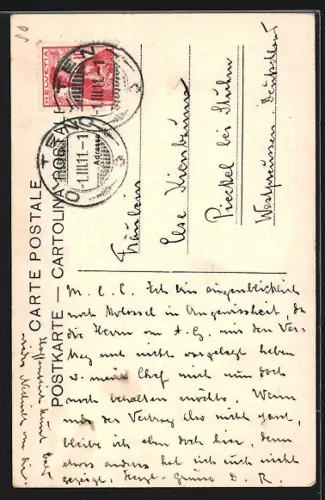 CARTE POSTALE
POSTKARTE — CARTOLINA POSTALE
HELVETIA
OLTEN
1.III.11.-1
OLTEN
1.III.11.-1
Fräulein
Else
Pieckel bei Stuhm
Westpreussen Deutschland
M. l. E. Ich bin augenblicklich
noch in Ungewissheit, da
die Herrn von A. G. mir den Ver-
trag noch nicht vorgelegt haben
u. mein Chef mich nun doch
noch behalten möchte. Wenn
mir der Vertrag also nicht passt,
bleibe ich eben doch hier, denn
etwas anders hat sich auch nicht
gezeigt. Herzl. Gruss D. R.
Hoffentlich kommt bald
wieder Nachricht von Dir